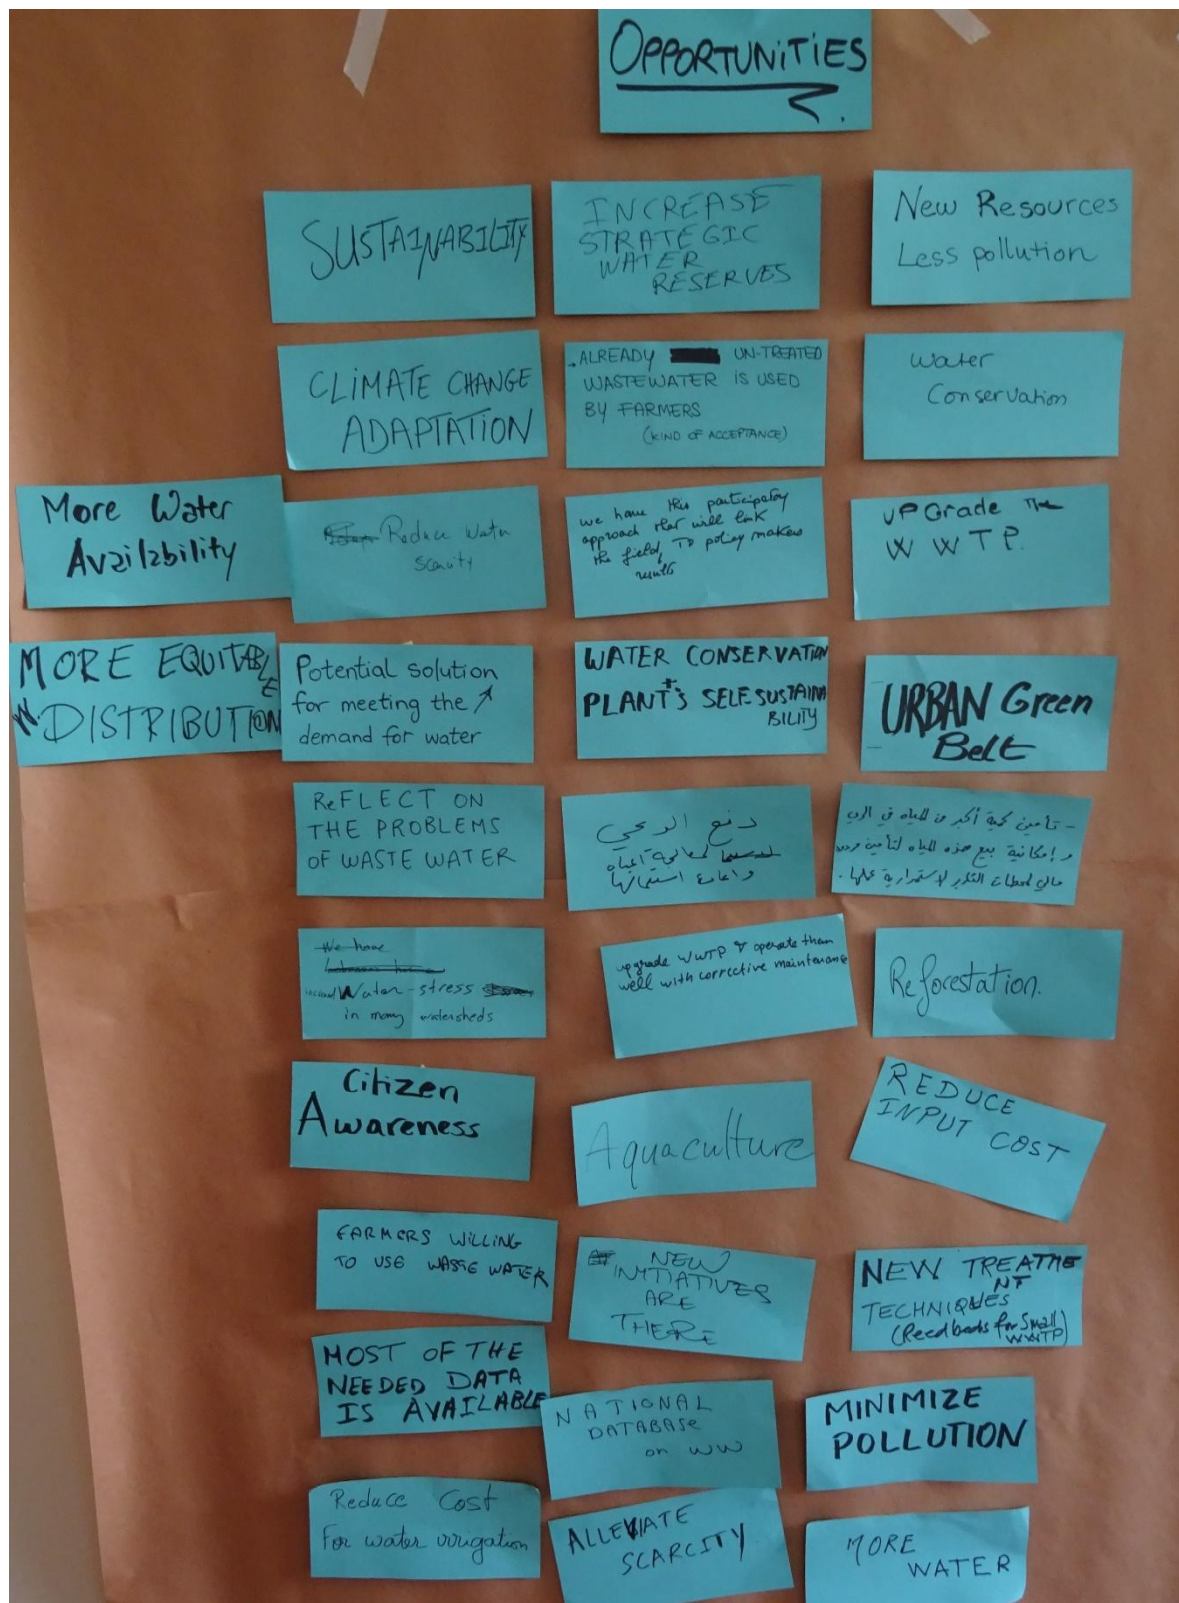 OPPORTUNITIES
SUSTAINABILITY
INCREASE
STRATEGIC
WATER
RESERVES
New Resources
Less pollution
CLIMATE CHANGE
ADAPTATION
ALREADY UN-TREATED
WASTEWATER IS USED
BY FARMERS
(KIND OF ACCEPTANCE)
Water
Conservation
More Water
Availability
Reduce Water
scarcity
we have this participatory
approach that will link
the field TO policy makers
results
UPGrade The
WWTP.
MORE EQUITABLE
W. DISTRIBUTION
Potential solution
for meeting the ↗
demand for water
WATER CONSERVATION
+
PLANT'S SELF-SUSTAINA
BILITY
URBAN Green
Belt
ReFLECT ON
THE PROBLEMS
OF WASTE WATER
دفع الوعي
لمعالجة المياه
واعادة استعمالها
- تأمين كمية أكبر من المياه في الري
و إمكانية بيع هذه المياه لتأمين مردود
مالي لمحطات التكرير لاستمرارية عملها.
We have
Water-stress
in many watersheds
upgrade WWTP & operate them
well with corrective maintenance
Reforestation.
Citizen
Awareness
Aquaculture
REDUCE
INPUT COST
FARMERS WILLING
TO USE WASTE WATER
NEW
INITIATIVES
ARE
THERE
NEW TREATME
NT
TECHNIQUES
(Reedbeds for Small
WWTP)
MOST OF THE
NEEDED DATA
IS AVAILABLE
NATIONAL
DATABASE
on WW
MINIMIZE
POLLUTION
Reduce Cost
For water irrigation
ALLEVIATE
SCARCITY
MORE
WATER